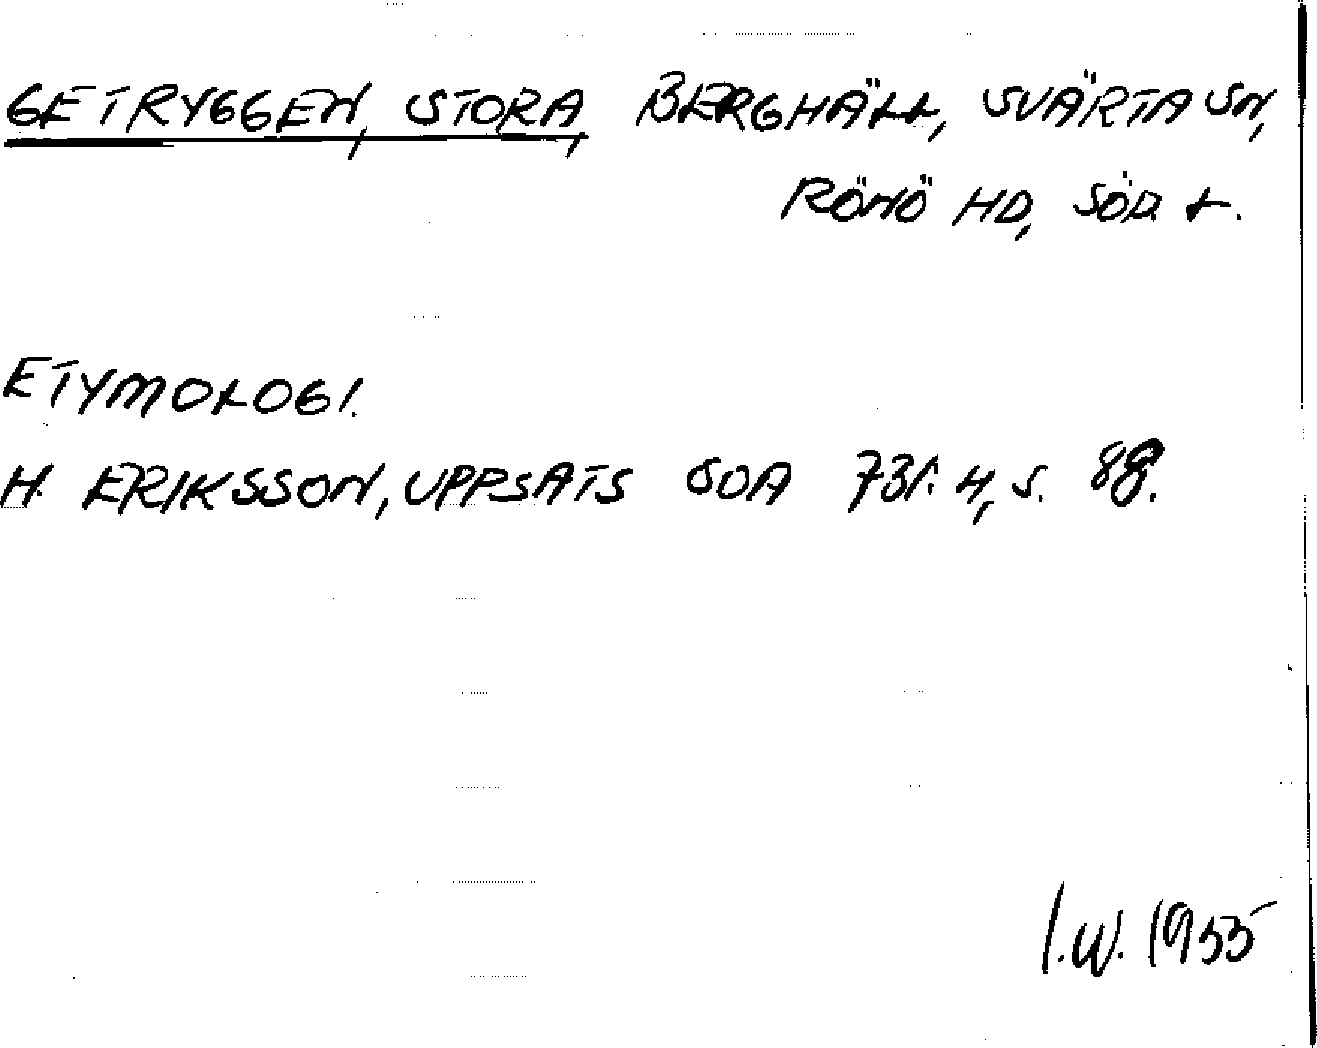 GETRYGGEN, STORA, BERGHÄLL, SVÄRTA SN,
RÖNÖ HD, SÖD L.
ETYMOLOGI.
H. ERIKSSON, UPPSATS SOA 731:4, S. 88.
I.W. 1955